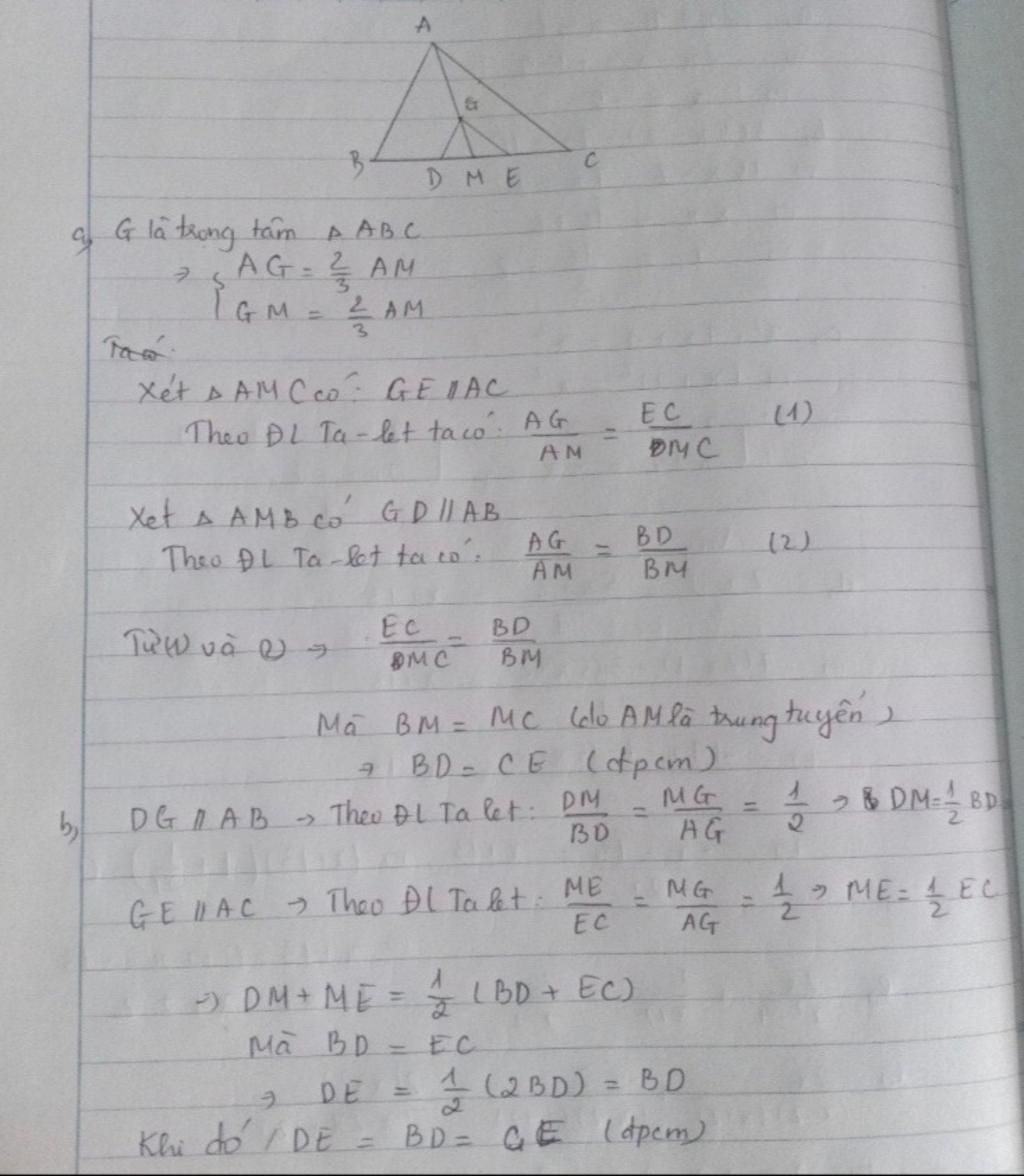 A
G
B D M E C
a, G là trọng tâm Δ ABC
→ { AG = 2/3 AM
GM = 2/3 AM
Ta có:
Xét Δ AMC có: GE // AC
Theo ĐL Ta-let ta có: AG/AM = EC/MC (1)
Xet Δ AMB có GD // AB
Theo ĐL Ta-let ta có: AG/AM = BD/BM (2)
Từ (1) và (2) → EC/MC = BD/BM
Mà BM = MC (do AM là trung tuyến)
→ BD = CE (đpcm)
b, DG // AB → Theo ĐL Ta let: DM/BD = MG/AG = 1/2 → DM = 1/2 BD
GE // AC → Theo ĐL Ta let: ME/EC = MG/AG = 1/2 → ME = 1/2 EC
→ DM + ME = 1/2 (BD + EC)
Mà BD = EC
→ DE = 1/2 (2BD) = BD
Khi đó / DE = BD = CE (đpcm)